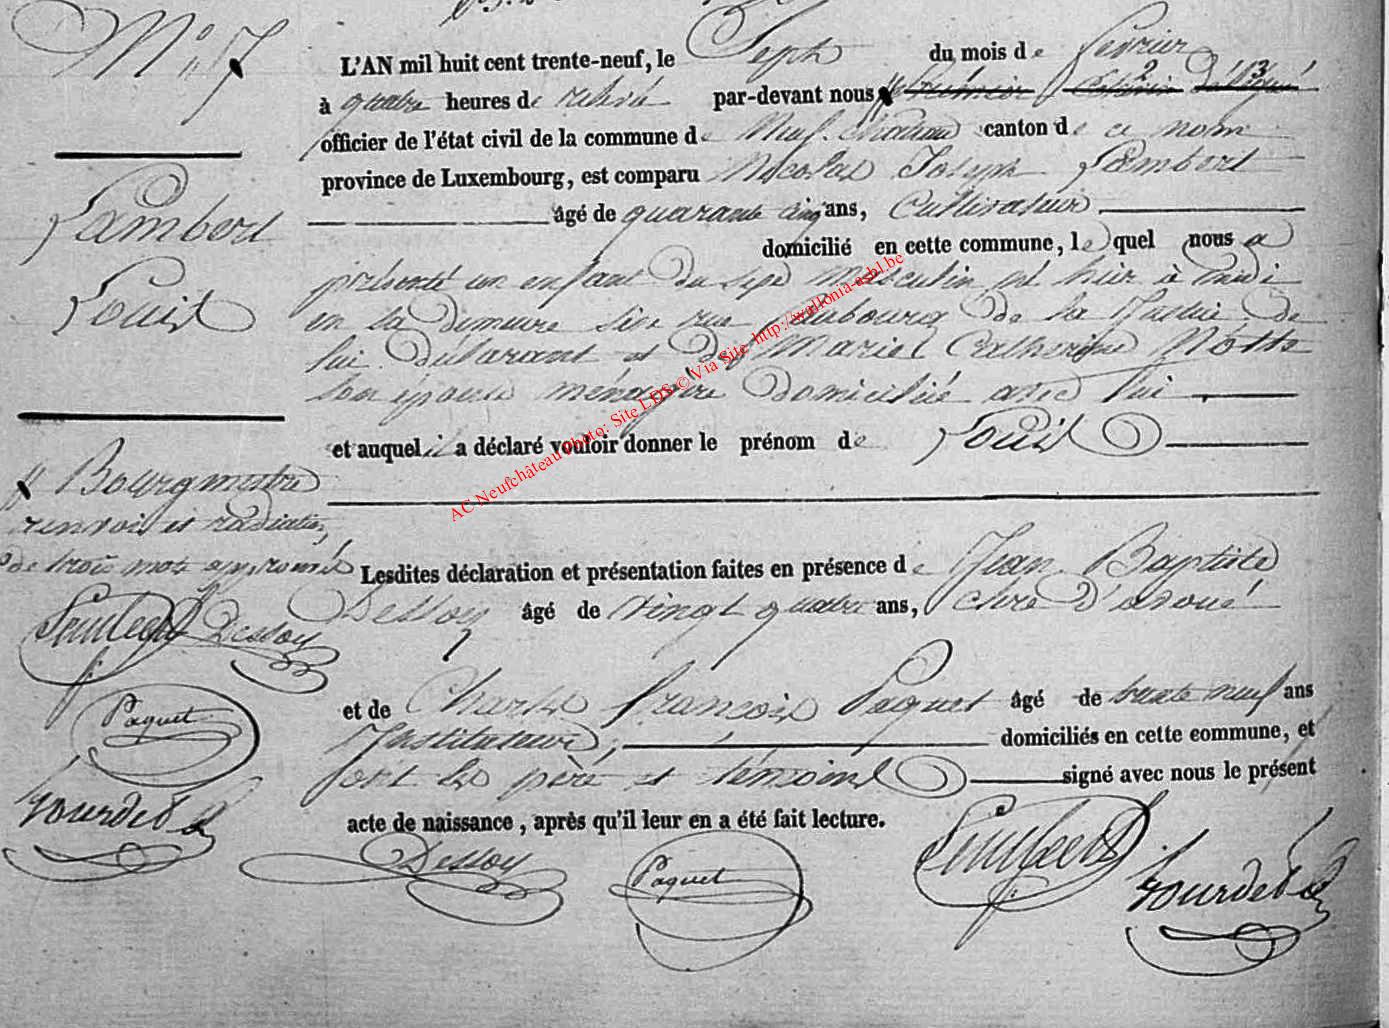 N° 7
Lambert
Louis
L'AN mil huit cent trente-neuf, le Sept du mois de février
à quatre heures de relevée par-devant nous
officier de l'état civil de la commune de Neufchateau canton de ce nom
province de Luxembourg, est comparu Nicolas Joseph Lambert
âgé de quarante cinq ans, Cultivateur
domicilié en cette commune, lequel nous a
présenté un enfant du sexe masculin né hier à midi
en sa demeure sise rue faubourg de la de
lui déclarant et de Marie Catherine
son épouse ménagère domiciliée avec lui
et auquel il a déclaré vouloir donner le prénom de Louis
Bourgmestre
renvoi et radiation
de trois mots approuvés
Lambert Dessoy
Paquet
Gourdet
Lesdites déclaration et présentation faites en présence de Jean Baptiste
Dessoy âgé de vingt quatre ans, clerc d'avoué
et de Charles François Paquet âgé de trente neuf ans
Instituteur, domiciliés en cette commune, et
ont les père et témoins signé avec nous le présent
acte de naissance, après qu'il leur en a été fait lecture.
Dessoy Paquet Lambert Gourdet
AC Neufchâteau Photo: Site LDS © Via Site http://wallonia-asbl.be